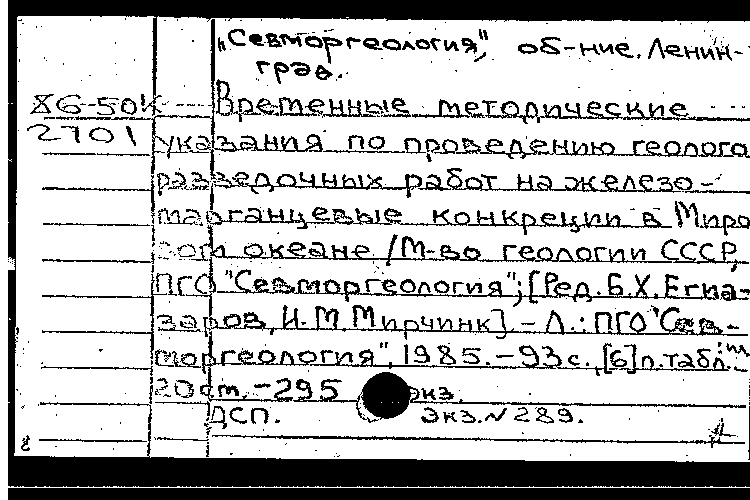 „Севморгеология", об-ние. Ленин-
град.
Х6-50К Временные методические
2701 указания по проведению геолого
разведочных работ на железо-
марганцевые конкреции в Миро
вом океане / М-во геологии СССР,
ПГО "Севморгеология"; [Ред. Б.Х. Егиа-
заров, И.М Мирчинк]. - Л.: ПГО "Сев-
моргеология", 1985. - 93 с., [6] л. табл.
20 см. - 295 экз.
ДСП. Экз. № 289.